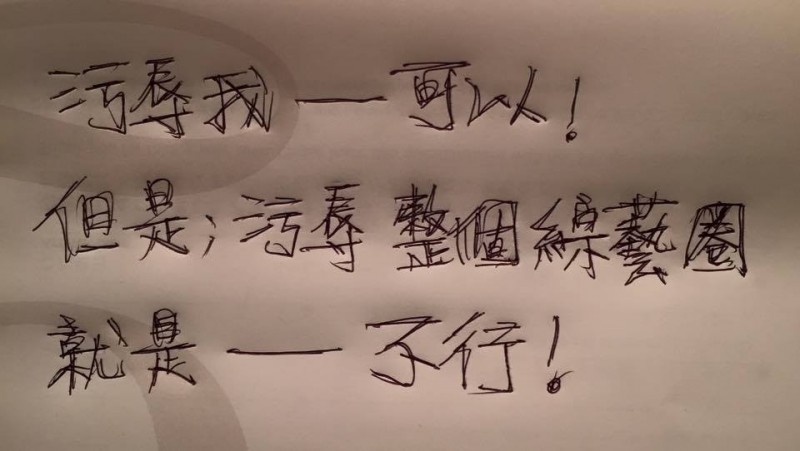 污辱我——可以!
但是;污辱整個綜藝圈
就是——不行!